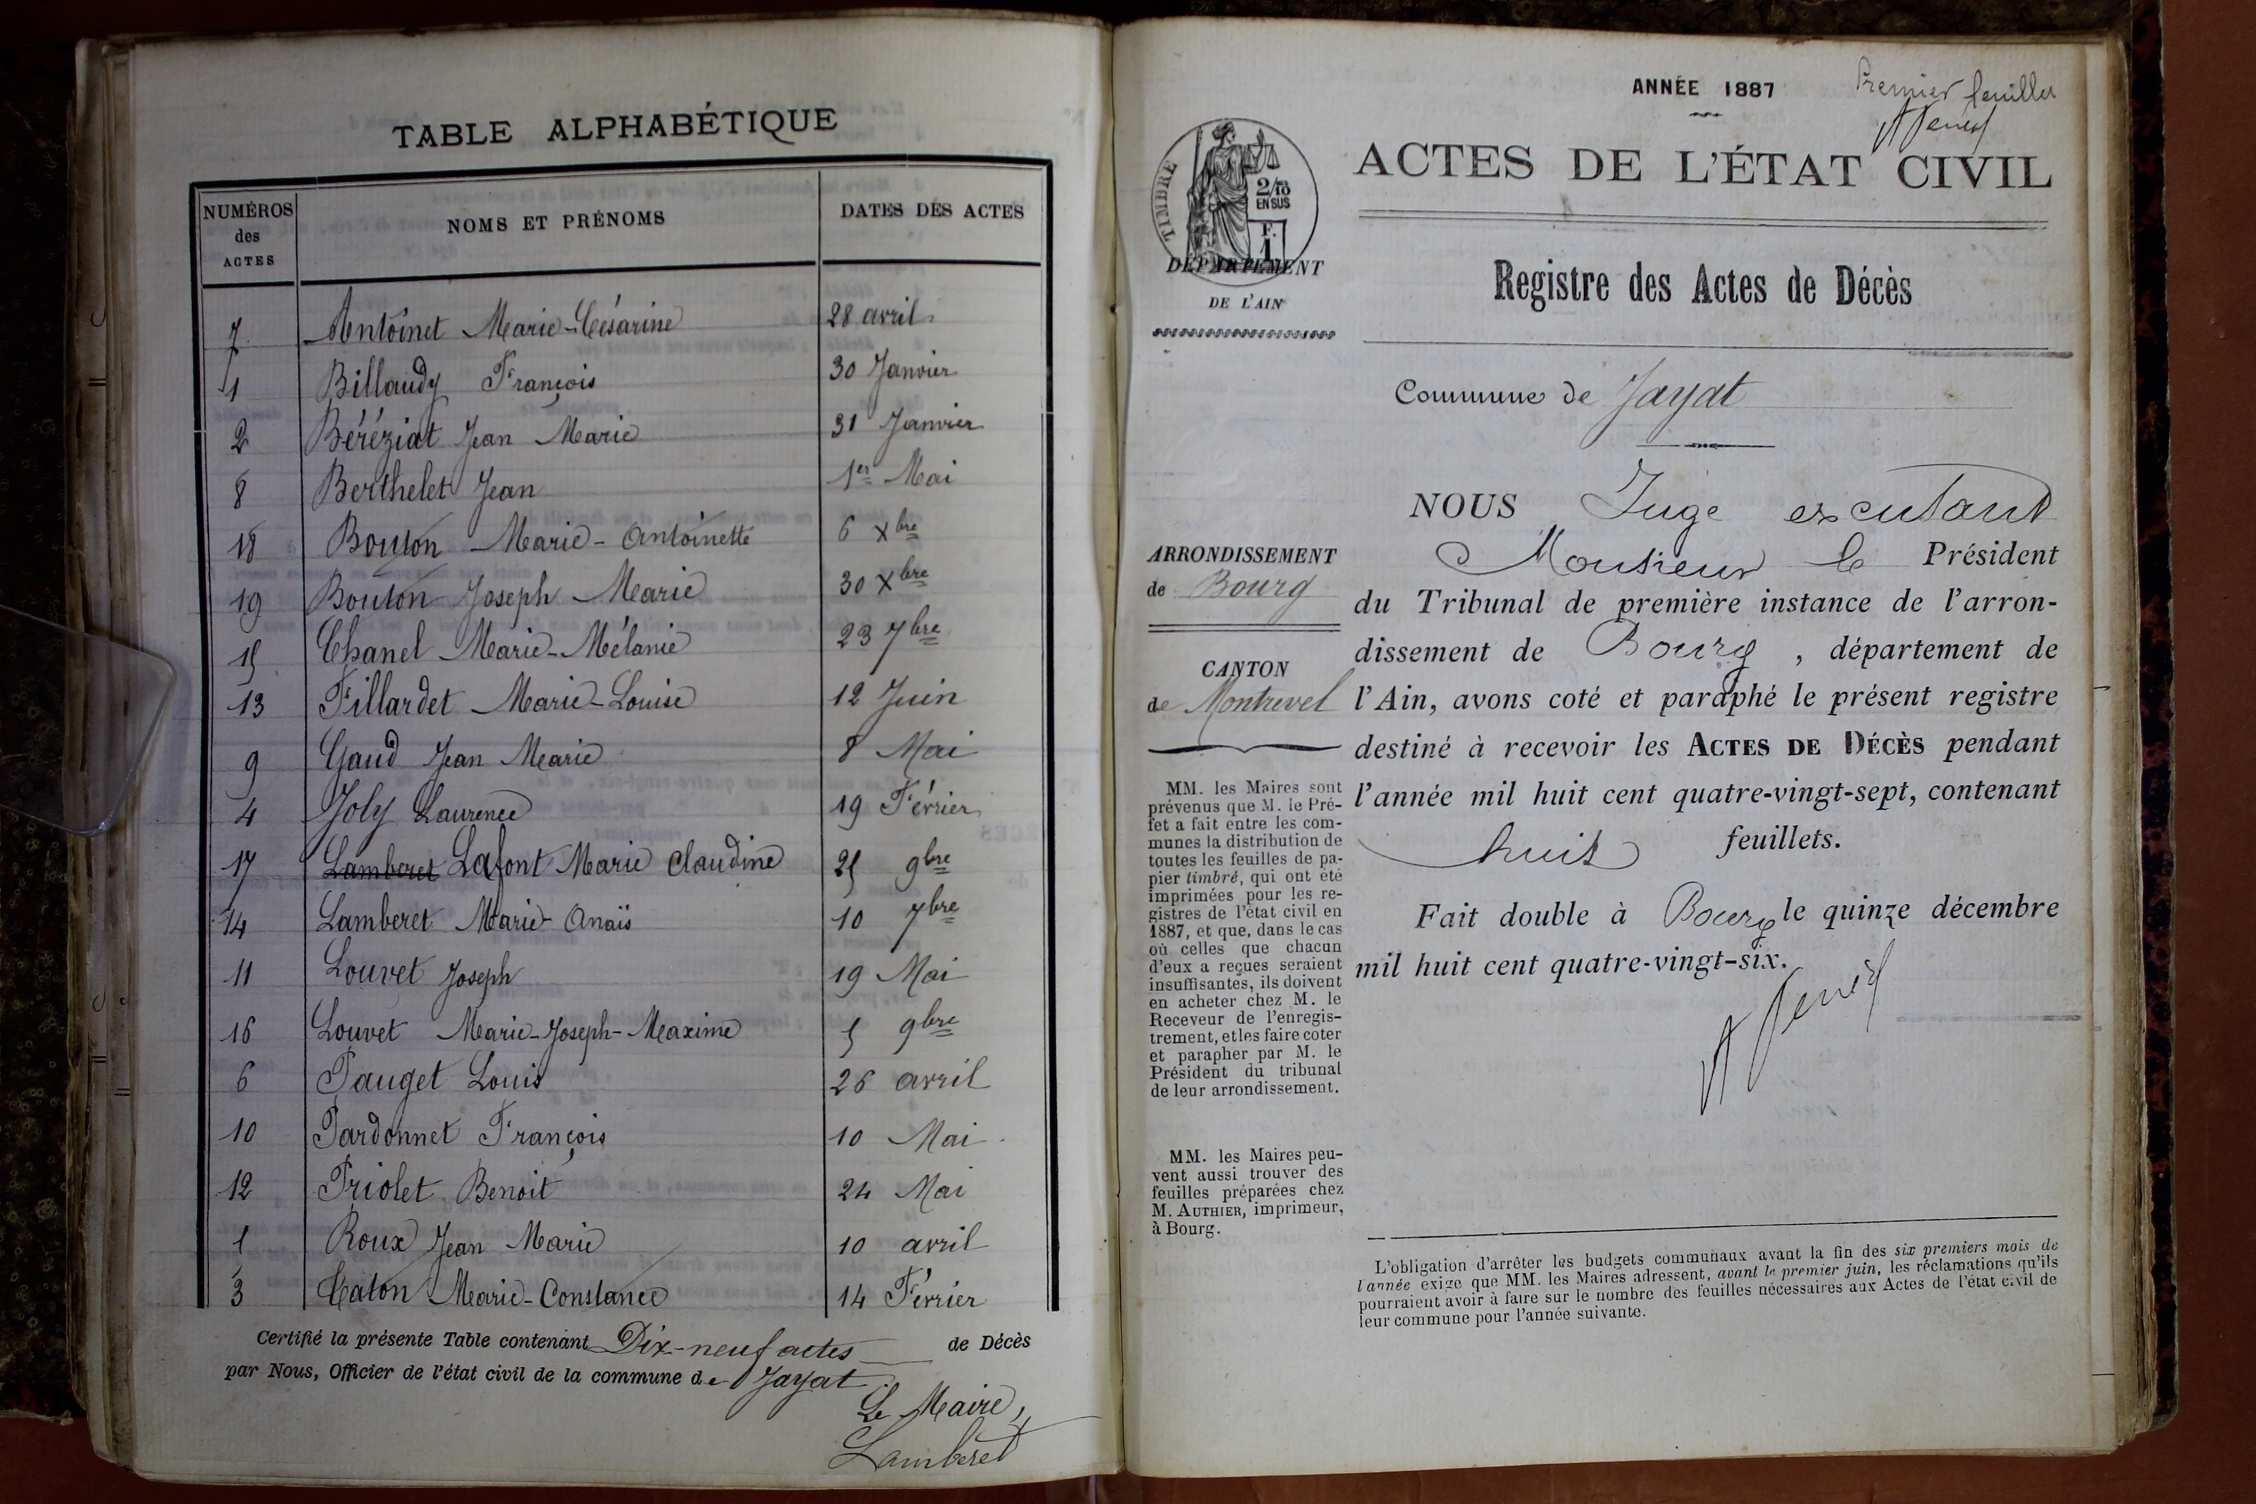 TABLE ALPHABÉTIQUE
NUMÉROS des ACTES NOMS ET PRÉNOMS DATES DES ACTES
7 Antoinet Marie-Césarine 28 avril
1 Billaudy François 30 Janvier
2 Béréziat Jean Marie 31 Janvier
8 Berthelet Jean 1er Mai
18 Bouton Marie-Antoinette 6 Xbre
19 Bouton Joseph Marie 30 Xbre
15 Chanel Marie-Mélanie 23 7bre
13 Fillardet Marie-Louise 12 Juin
9 Gaud Jean Marie 8 Mai
4 Joly Laurence 19 Février
17 Lamberet Lafont Marie Claudine 25 9bre
14 Lamberet Marie-Anaïs 10 7bre
11 Louvet Joseph 19 Mai
16 Louvet Marie-Joseph-Maxime 5 9bre
6 Pauget Louis 26 avril
10 Pardonnet François 10 Mai
12 Priolet Benoit 24 Mai
5 Roux Jean Marie 10 avril
3 Caton Marie-Constance 14 Février
Certifié la présente Table contenant Dix-neuf actes de Décès
par Nous, Officier de l'état civil de la commune de Jayat.
Le Maire,
Lamberet
Premier feuillet
ANNÉE 1887
ACTES DE L'ÉTAT CIVIL
TIMBRE
2/10
EN SUS
F.
1
DÉPARTEMENT
DE L'AIN
Registre des Actes de Décès
Commune de Jayat
ARRONDISSEMENT
de Bourg
CANTON
de Montrevel
MM. les Maires sont
prévenus que M. le Pré-
fet a fait entre les com-
munes la distribution de
toutes les feuilles de pa-
pier timbré, qui ont été
imprimées pour les re-
gistres de l'état civil en
1887, et que, dans le cas
où celles que chacun
d'eux a reçues seraient
insuffisantes, ils doivent
en acheter chez M. le
Receveur de l'enregis-
trement, et les faire coter
et parapher par M. le
Président du tribunal
de leur arrondissement.
MM. les Maires peu-
vent aussi trouver des
feuilles préparées chez
M. AUTHIER, imprimeur,
à Bourg.
NOUS Juge excutant
Monsieur le Président
du Tribunal de première instance de l'arron-
dissement de Bourg, département de
l'Ain, avons coté et paraphé le présent registre
destiné à recevoir les ACTES DE DÉCÈS pendant
l'année mil huit cent quatre-vingt-sept, contenant
huit feuillets.
Fait double à Bourg le quinze décembre
mil huit cent quatre-vingt-six.
L'obligation d'arrêter les budgets communaux avant la fin des six premiers mois de
l'année exige que MM. les Maires adressent, avant le premier juin, les réclamations qu'ils
pourraient avoir à faire sur le nombre des feuilles nécessaires aux Actes de l'état civil de
leur commune pour l'année suivante.